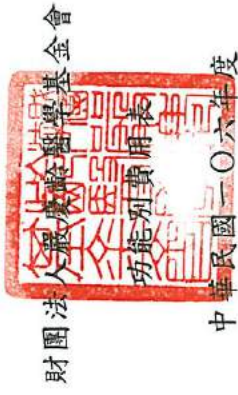 財團法人嚴慶齡醫學基金會
功能別費用表
中華民國一〇六年度